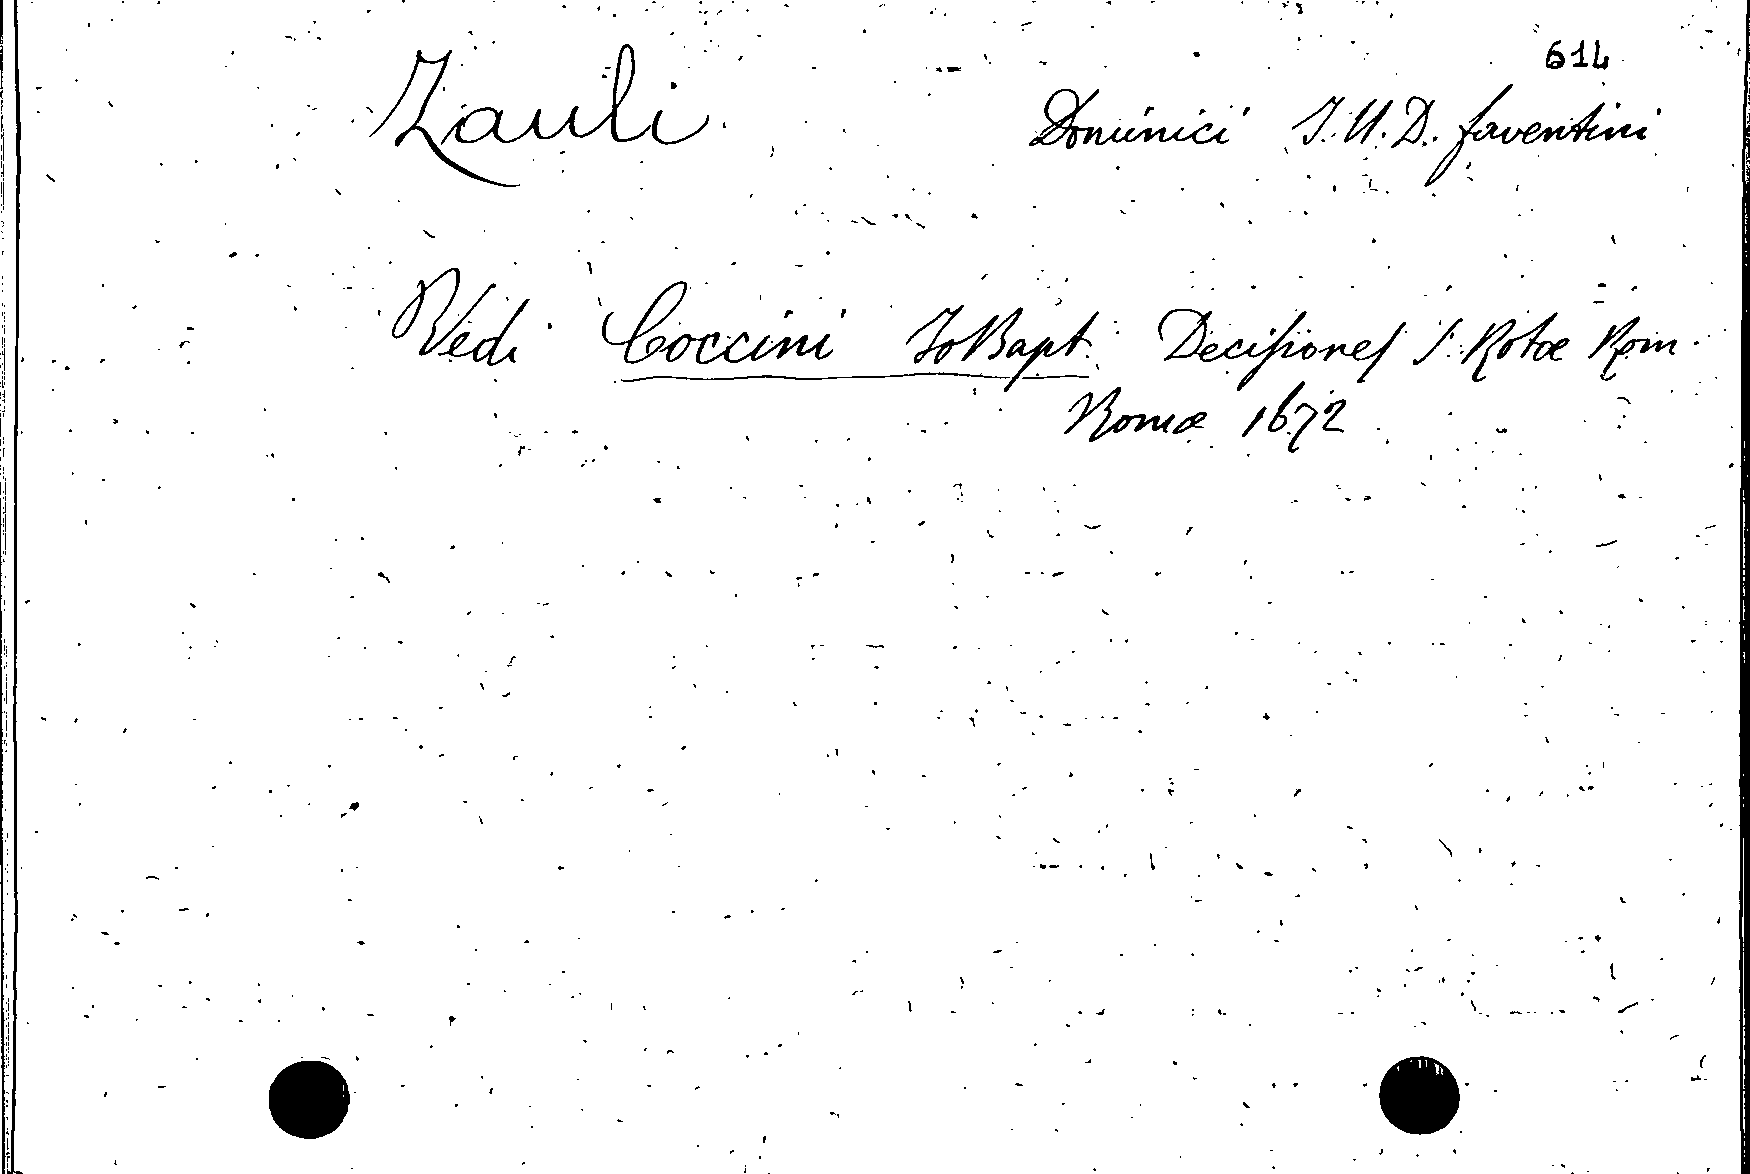 614
Zauli Dominici I. U. D. faventini
Vedi Coccini Io Bapt. Decisiones S. Rotæ Rom.
Romæ 1672